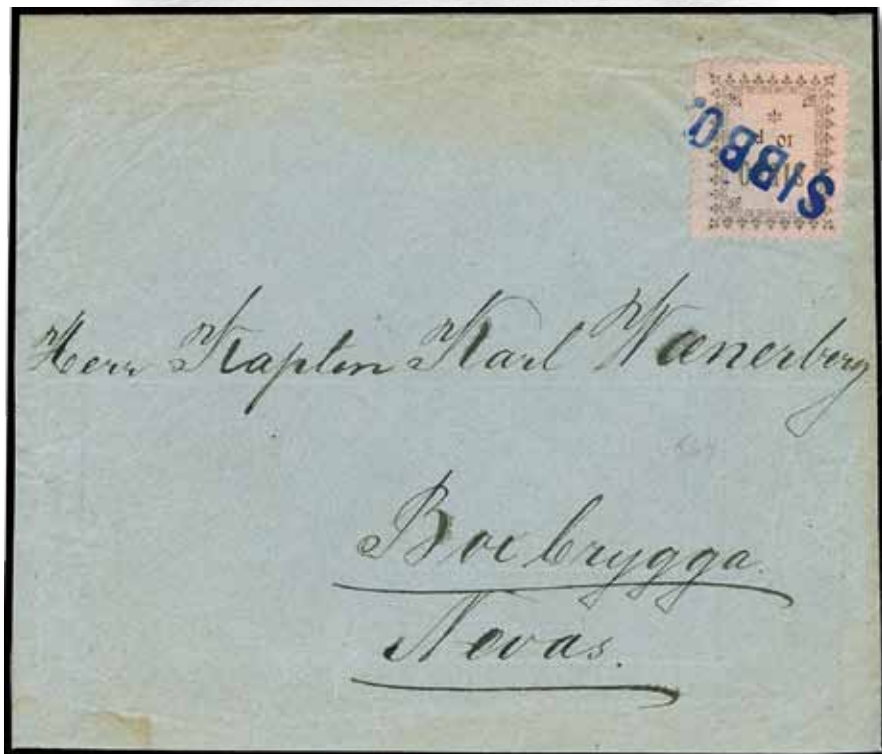 SIBBO.
10 P
Herr Kapten Karl Wænerberg
Box brygga.
Nevas.